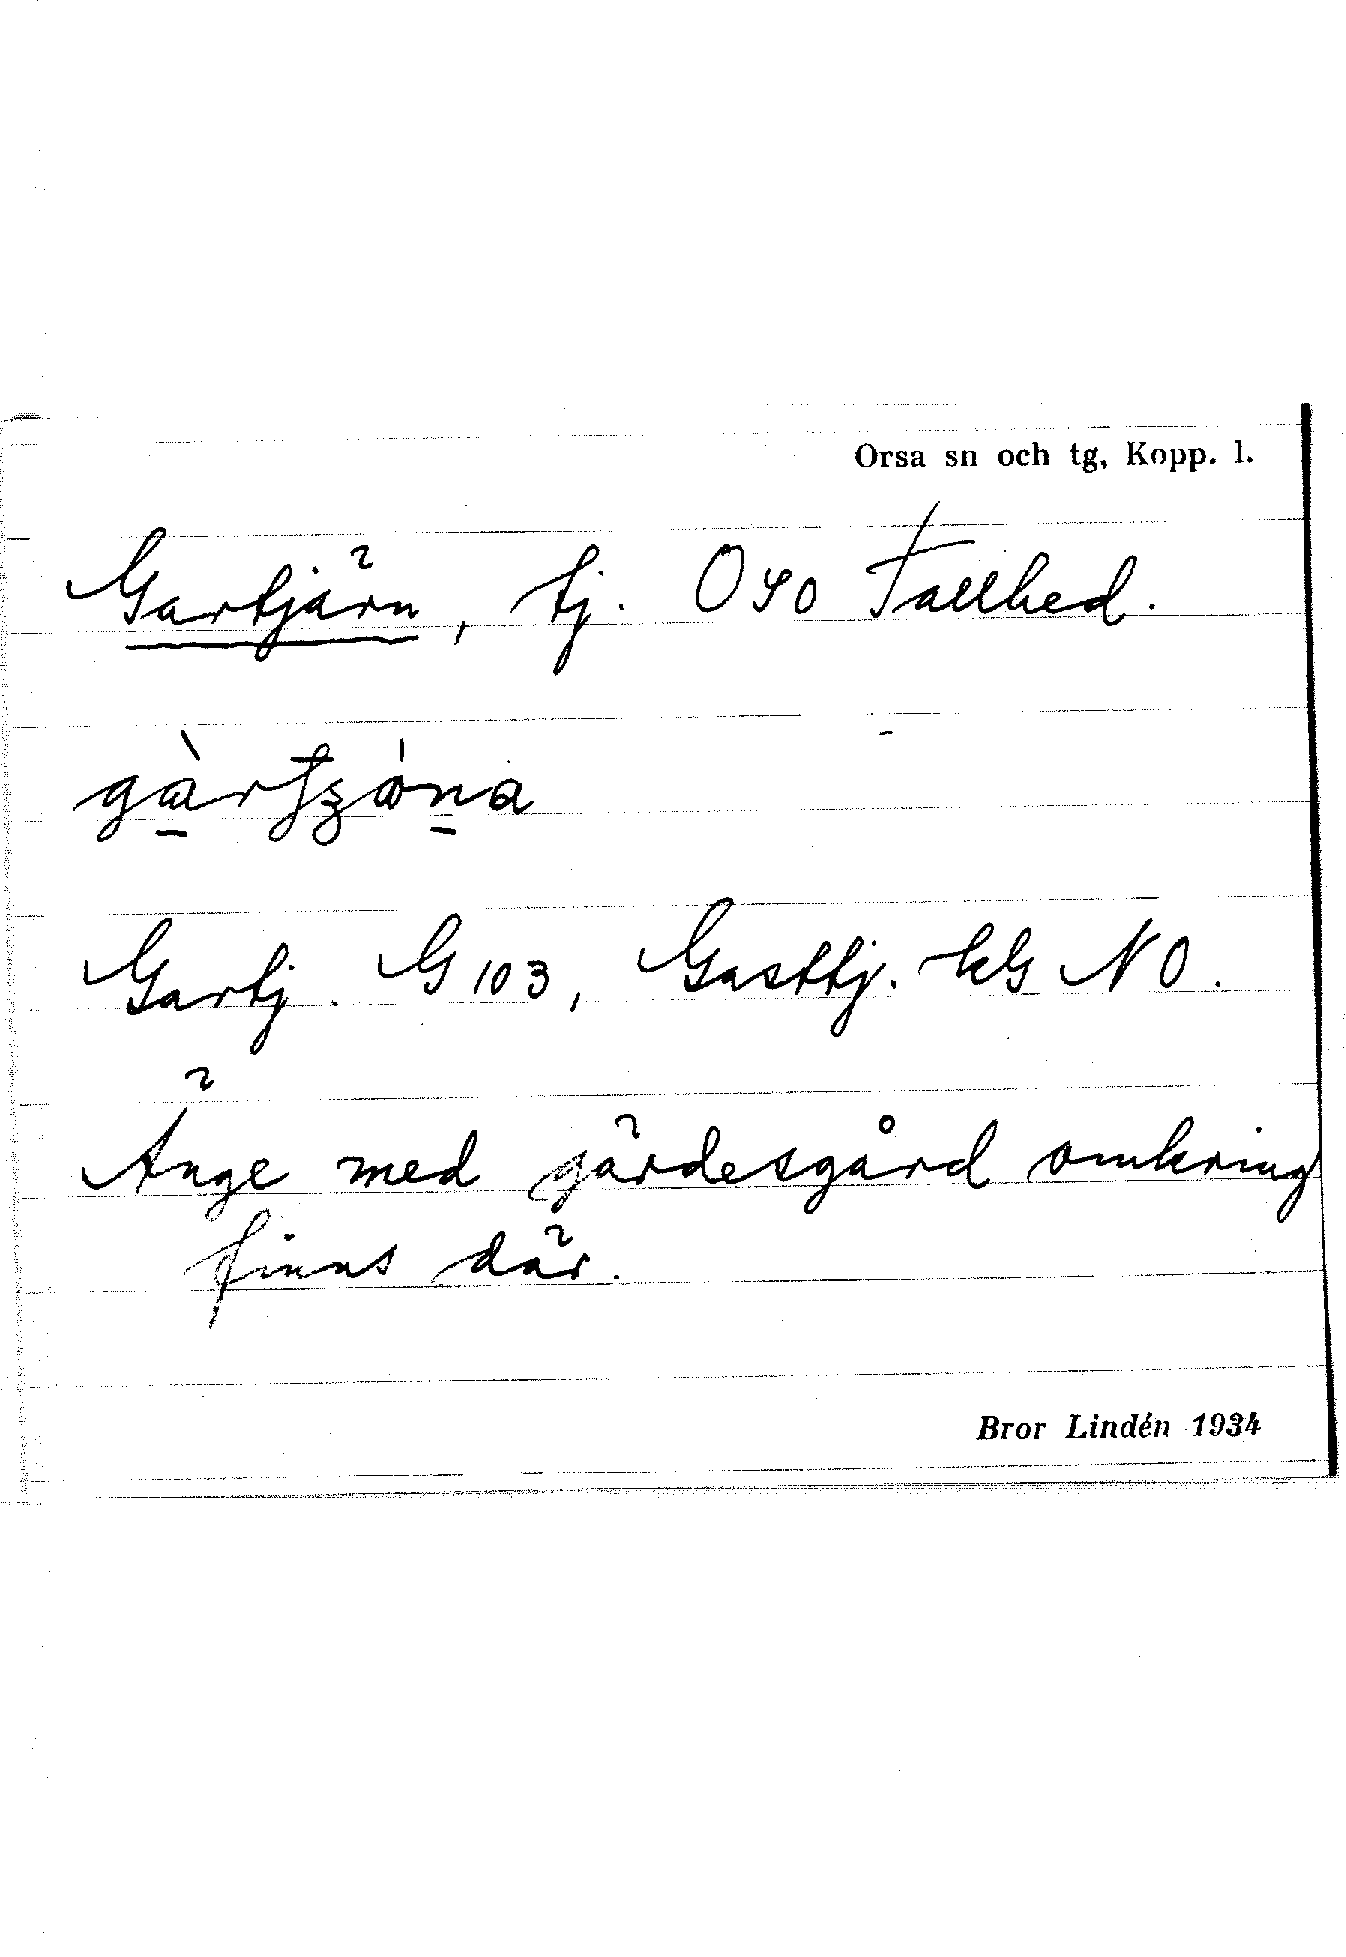 Orsa sn och tg, Kopp. l.
Gartjärn, tj. OSO Tallhed.
Gartj. G 103, Gasttj. kG NO.
Änge med gärdesgård omkring
finns där.
Bror Lindén 1934